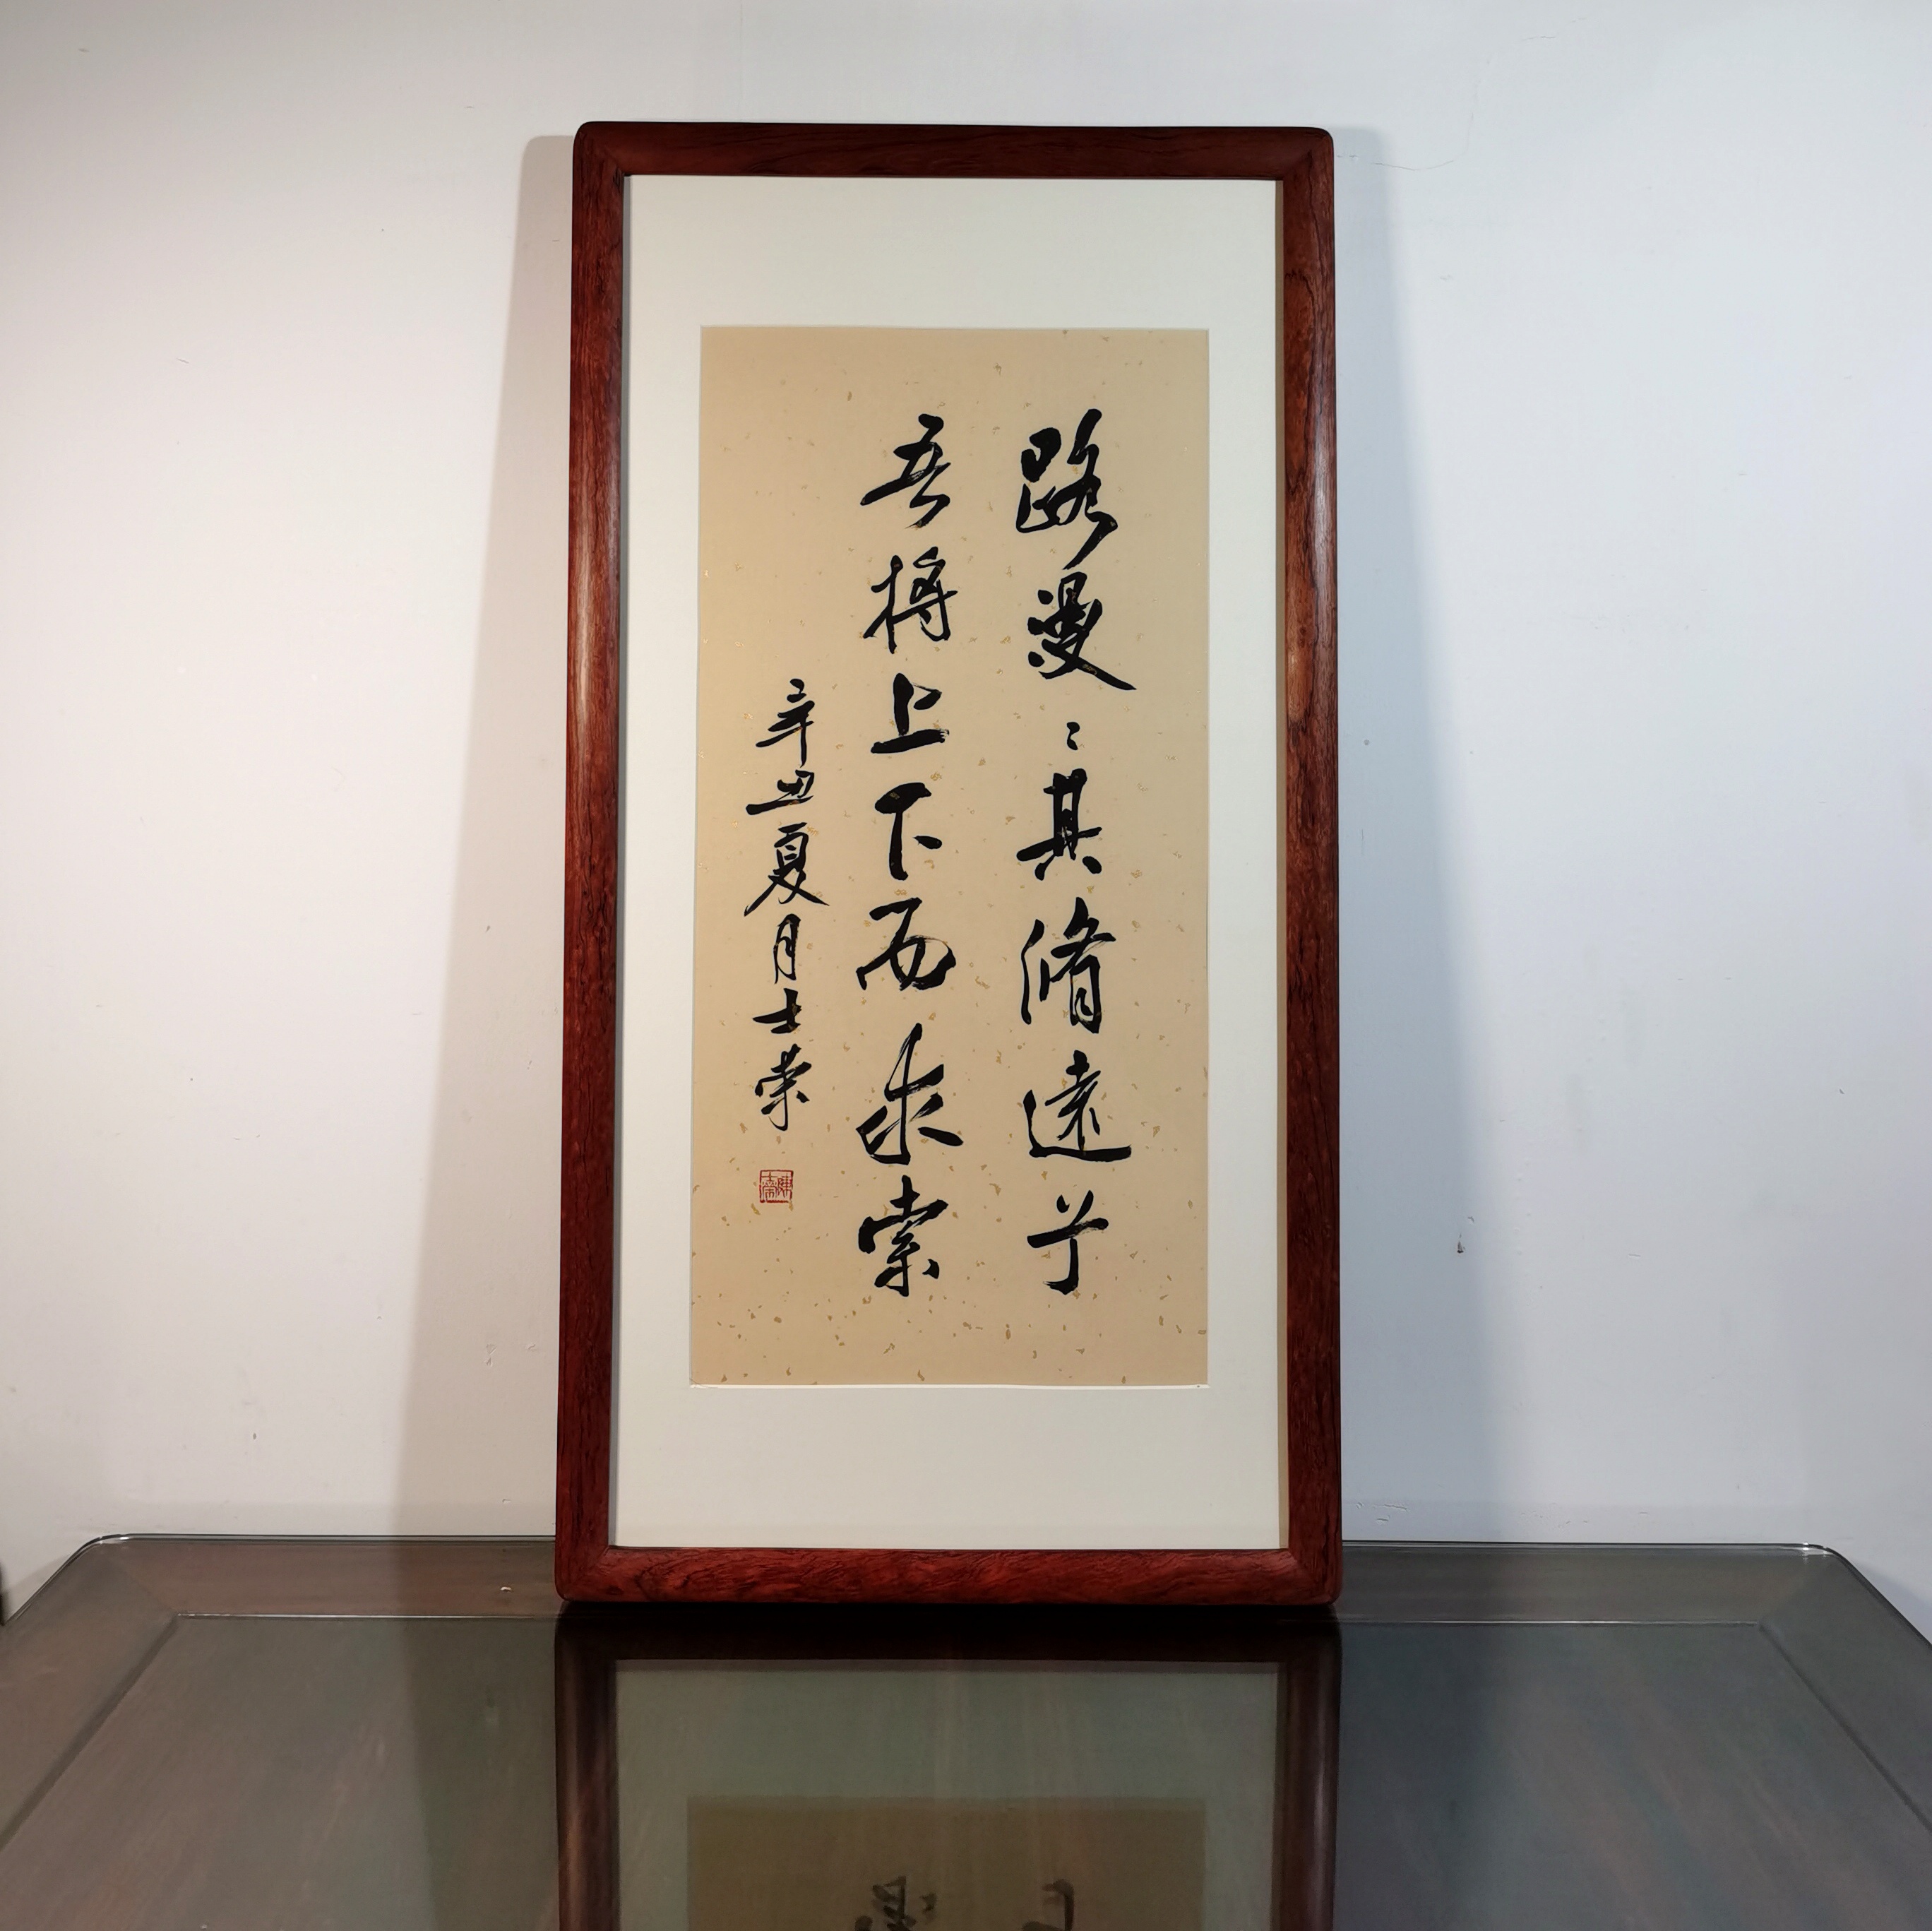 路漫〻其脩遠兮
吾將上下而求索
辛丑夏月士榮